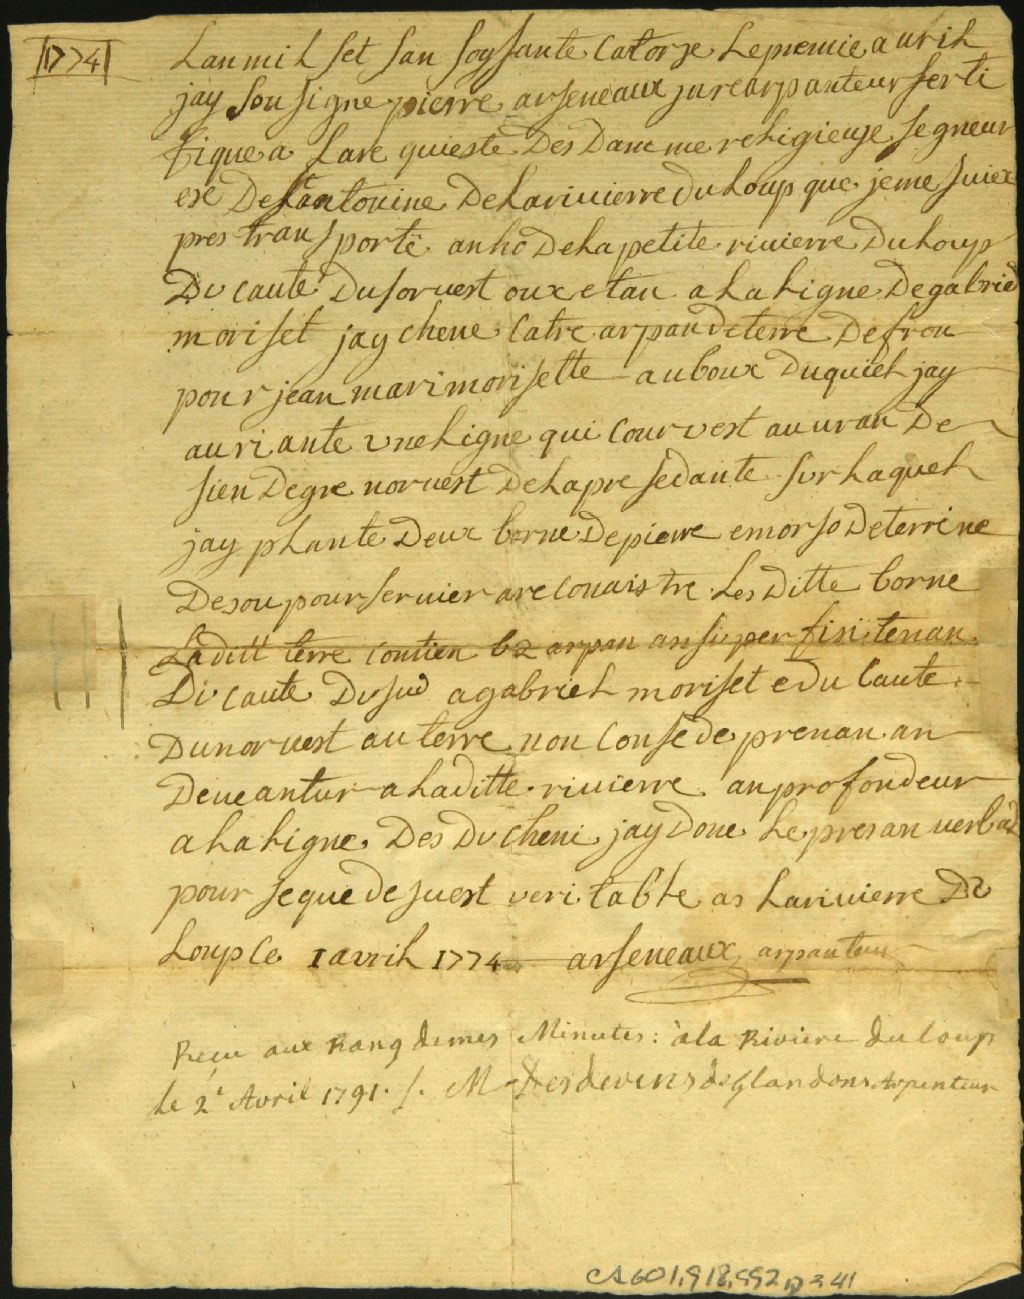 1774
Lan mil set san soysante Catorse Le premie avril
jay sousigne pierre arseneaux jure arpanteur serti
fique a Lare quieste Des Damme religieuse segneur
ese De St antouine De La rivierre du Loup que je me suiex
pres transporté an ho De La petite rivierre Du Loup
Du caute Du sorvest oux etan a La Ligne De gabriel
moriset jay chene Catre arpan de terre De fron
pour jean mari morisette au boux Duquiel jay
auriante vne Ligne qui Cour vest au uran De
sien Degre norvest De La pre sedante sur Laquel
jay plante Deux borne De pierre e morso De terrine
Desou pour servier a re conaistre Les Ditte borne
La ditt terre contien 62 arpan an super fisi tenan
Du caute Du sud a gabriel moriset e du Caute
Du norvest au terre non Consede prenan an
Deveantur a La ditte rivierre an profondeur
a La Ligne Des Du cheni jay Done Le presan verbal
pour se que de suest veritable as La rivierre Du
Loup Ce 1 avril 1774 arseneaux arpanteur
Reçu aux Rang de mes Minutes : à la Riviere du loup
Le 2e Avril 1791. /. M Desdevens de Glandons Arpenteur
CA601,S18,SS2,D341